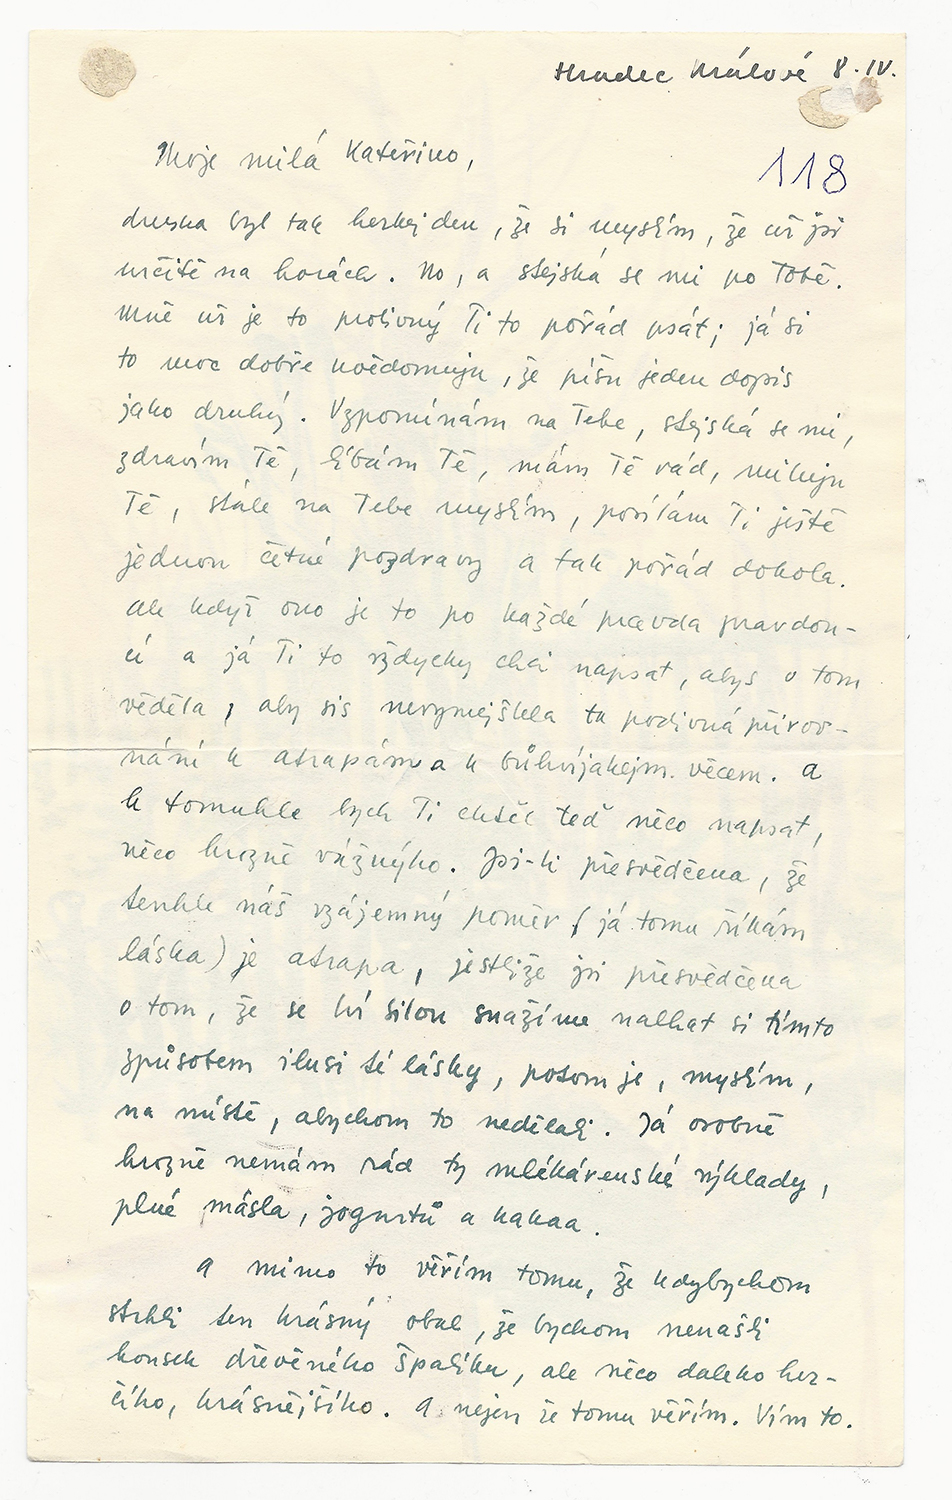 Hradec Králové 8.IV.
118
Moje milá Kateřino,
dneska byl tak hezkej den, že si myslím, že už jsi
určitě na horách. No, a stejská se mi po Tobě.
Mně už je to protivný Ti to pořád psát; já si
to moc dobře uvědomuju, že píšu jeden dopis
jako druhý. Vzpomínám na Tebe, stejská se mi,
zdravím Tě, líbám Tě, mám Tě rád, miluju
Tě, stále na Tebe myslím, posílám Ti ještě
jednou četné pozdravy a tak pořád dokola.
Ale když ono je to po každé pravda pravdou-
cí a já Ti to vždycky chci napsat, abys o tom
věděla, aby sis nevymejšlela ta podivná přirov-
nání k atrapám a k bůhvíjakejm věcem. A
k tomuhle bych Ti chtěl teď něco napsat,
něco hrozně vážnýho. Jsi-li přesvědčena, že
tenhle náš vzájemný poměr (já tomu říkám
láska) je atrapa, jestliže jsi přesvědčena
o tom, že se tví silou snažíme nalhat si tímto
způsobem ilusi té lásky, potom je, myslím,
na místě, abychom to nedělali. Já osobně
hrozně nemám rád ty mlékárenské výklady,
plné másla, jogurtů a kakaa.
A mimo to věřím tomu, že kdybychom
strhli ten krásný obal, že bychom nenašli
kousek dřevěného špalíku, ale něco daleko hez-
čího, krásnějšího. A nejen že tomu věřím. Vím to.